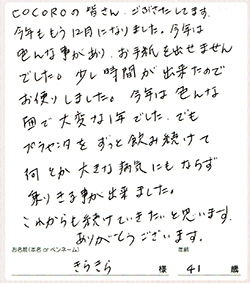 COCOROの皆さん、ごぶさたしてます。
今年ももう12月になりました。今年は
色んな事があり、お手紙を出せません
でした。少し時間が出来たので
お便りしました。今年は色んな
面で大変な1年でした。でも
プラセンタをずっと飲み続けて
何とか大きな病気にもならず
乗りきる事が出来ました。
これからも続けていきたいと思います。
ありがとうございます。
お名前(本名 or ペンネーム) 年齢
きらきら 様 41 歳